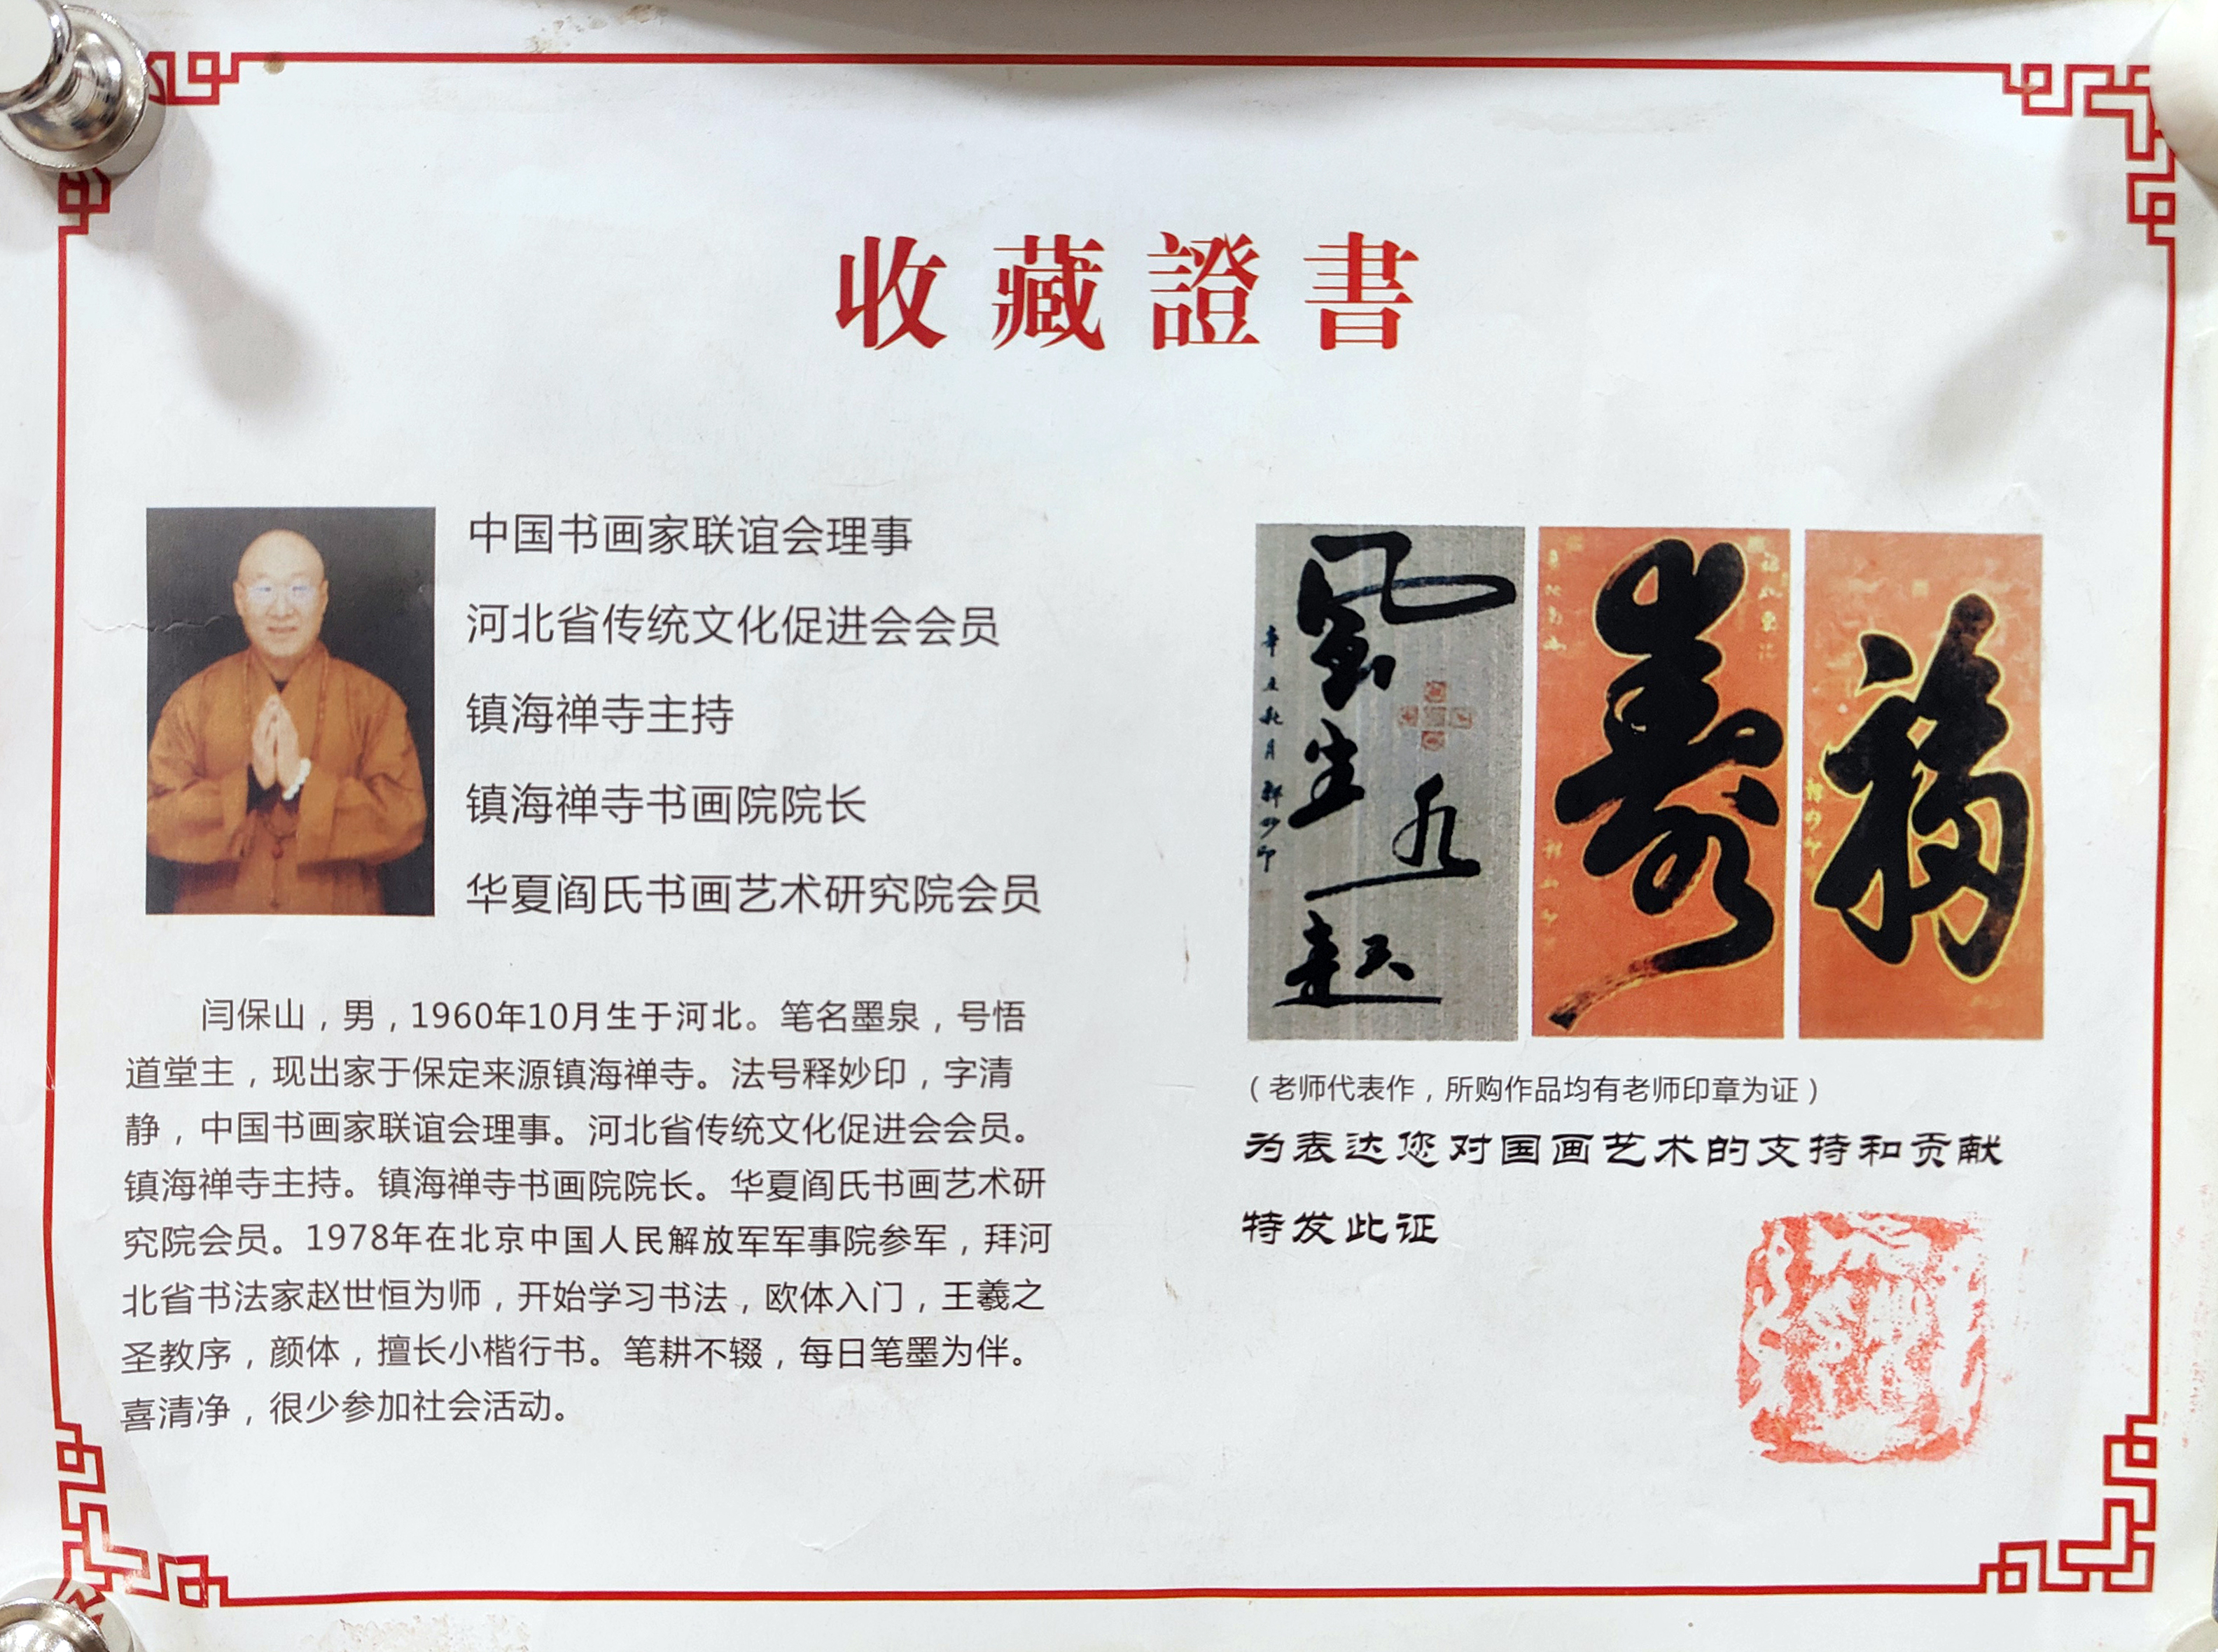 收藏證書
中国书画家联谊会理事
河北省传统文化促进会会员
镇海禅寺主持
镇海禅寺书画院院长
华夏阎氏书画艺术研究院会员
闫保山，男，1960年10月生于河北。笔名墨泉，号悟
道堂主，现出家于保定来源镇海禅寺。法号释妙印，字清
静，中国书画家联谊会理事。河北省传统文化促进会会员。
镇海禅寺主持。镇海禅寺书画院院长。华夏阎氏书画艺术研
究院会员。1978年在北京中国人民解放军军事院参军，拜河
北省书法家赵世恒为师，开始学习书法，欧体入门，王羲之
圣教序，颜体，擅长小楷行书。笔耕不辍，每日笔墨为伴。
喜清净，很少参加社会活动。
寿
福
（老师代表作，所购作品均有老师印章为证）
为表达您对国画艺术的支持和贡献
特发此证